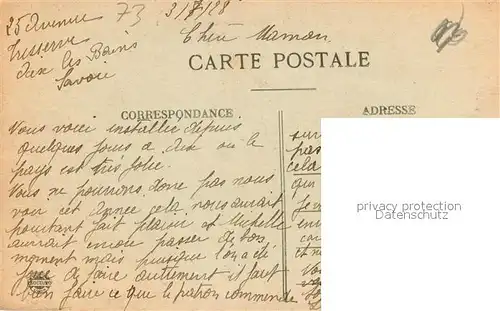 25 Avenue
Tresserve
Aix les Bains
Savoie
73
3/7/28
Chère Maman.
CARTE POSTALE
CORRESPONDANCE
ADRESSE
Nous voici installés depuis
quelques jours à Aix où le
pays est très jolie.
Nous ne pourrons donc pas nous
voir cet année cela nous aurait
pourtant fait plaisir et Michelle
aurait encore passer de bons
moment mais puisque l'on a été
à faire autrement il faut
bien faire ce que le patron commende
pas
cela
qui
Je
privacy protection
www.ansichtskartenversand.com